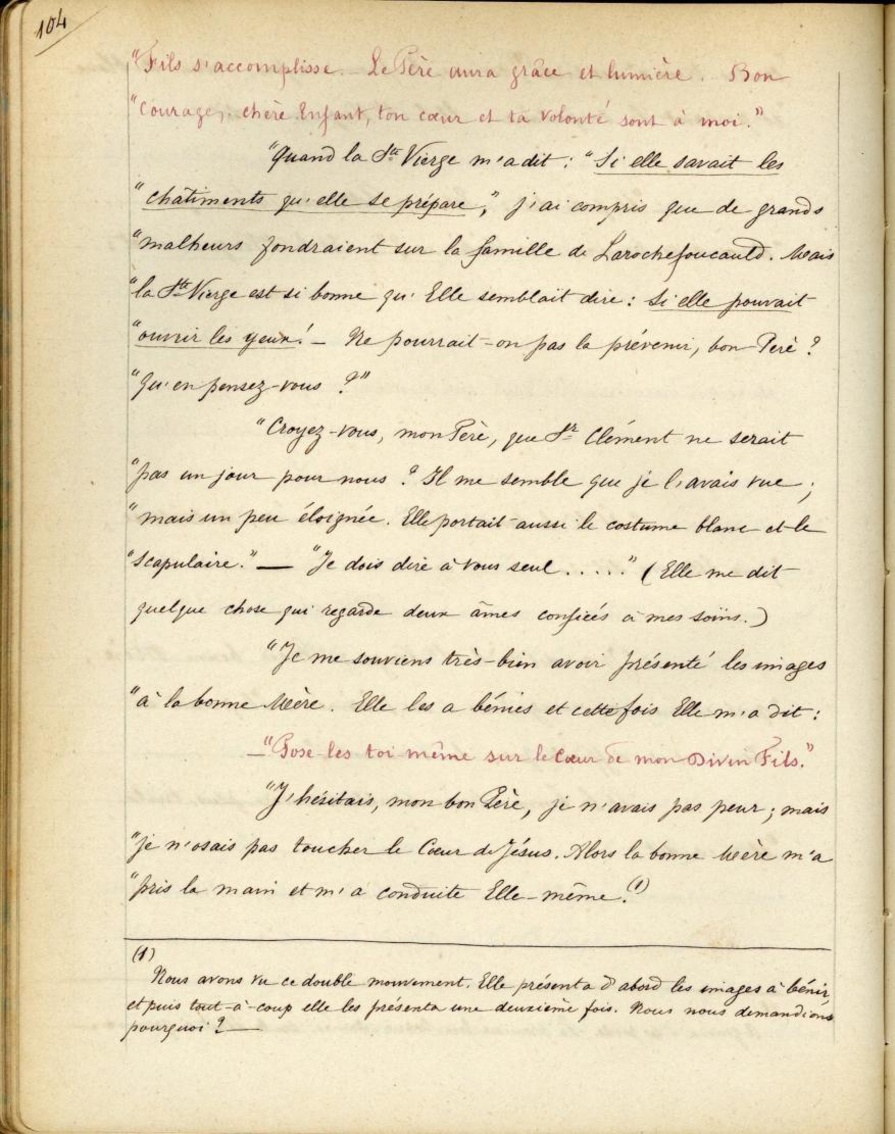 104
"Fils s'accomplisse. Le Père aura grâce et lumière. Bon
"Courage, chère Enfant, ton cœur et ta volonté sont à moi."
"Quand la Ste Vierge m'a dit : "Si elle savait les
"châtiments qu'elle se prépare," j'ai compris que de grands
"malheurs fondraient sur la famille de Larochefoucauld. Mais
"la Ste Vierge est si bonne qu'Elle semblait dire : Si elle pouvait
"ouvrir les yeux! — Ne pourrait-on pas la prévenir, bon Père ?
"Qu'en pensez-vous ?"
"Croyez-vous, mon Père, que Sr Clément ne serait
"pas un jour pour nous ? Il me semble que je l'avais vue ;
"mais un peu éloignée. Elle portait aussi le costume blanc et le
"scapulaire." — "Je dois dire à vous seul ....." (Elle me dit
quelque chose qui regarde deux âmes confiées à mes soins.)
"Je me souviens très-bien avoir présenté les images
"à la bonne Mère. Elle les a bénies et cette fois Elle m'a dit :
— "Pose-les toi-même sur le Cœur de mon Divin Fils."
"J'hésitais, mon bon Père, je n'avais pas peur ; mais
"je n'osais pas toucher le Cœur de Jésus. Alors la bonne Mère m'a
"pris la main et m'a conduite Elle-même. (1)
(1)
Nous avons vu ce double mouvement. Elle présenta d'abord les images à bénir,
et puis tout-à-coup elle les présenta une deuxième fois. Nous nous demandions
pourquoi ? —